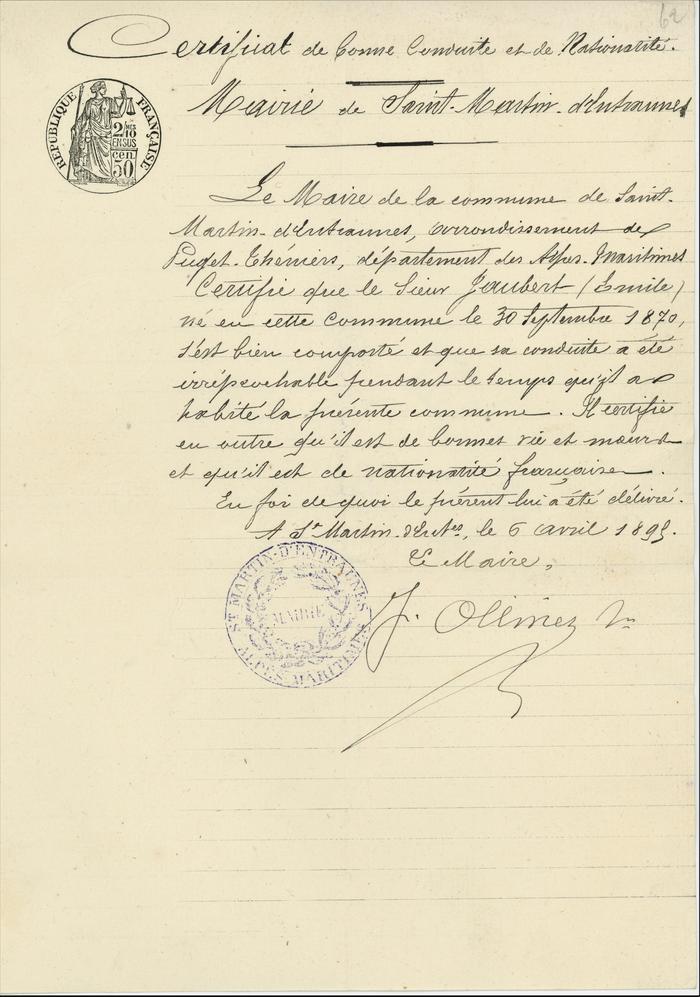 62
Certificat de bonne conduite et de Nationalité.
Mairie de Saint-Martin-d'Entraunes
RÉPUBLIQUE FRANÇAISE
2/10
EN SUS
50 cen
Le Maire de la commune de Saint-
Martin-d'Entraunes, arrondissement de
Puget-Théniers, département des Alpes-Maritimes
Certifie que le sieur Jaubert (Emile)
né en cette commune le 30 Septembre 1870,
s'est bien comporté et que sa conduite a été
irréprochable pendant le temps qu'il a
habité la présente commune. Il certifie
en outre qu'il est de bonnes vie et mœurs
et qu'il est de nationalité française.
En foi de quoi le présent lui a été délivré.
A St Martin-d'Entes, le 6 avril 1895.
Le Maire,
ST MARTIN-D'ENTRAUNES
MAIRIE
ALPES-MARITIMES
J. Ollivier